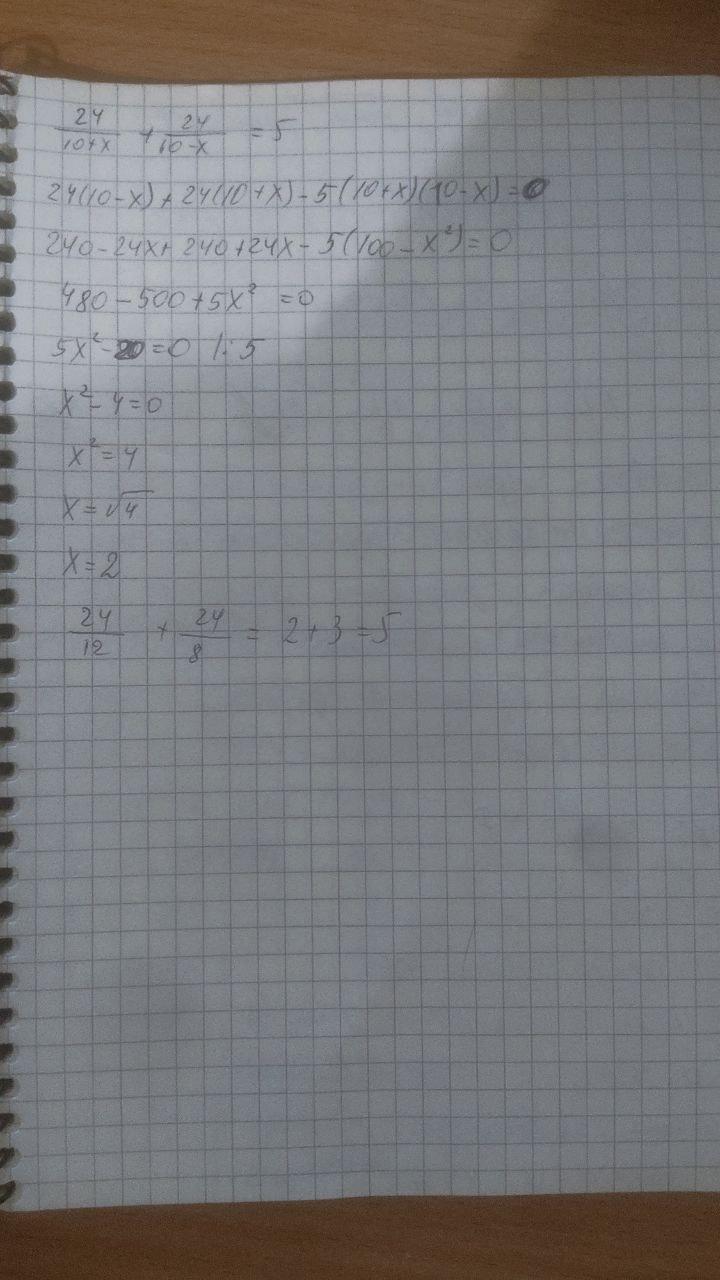 24/(10+x) + 24/(10-x) = 5
24(10-x)+24(10+x)-5(10+x)(10-x)=0
240-24x+240+24x-5(100-x²)=0
480-500+5x²=0
5x²-20=0 |:5
x²-4=0
x²=4
x=√4
x=2
24/12 + 24/8 = 2+3=5